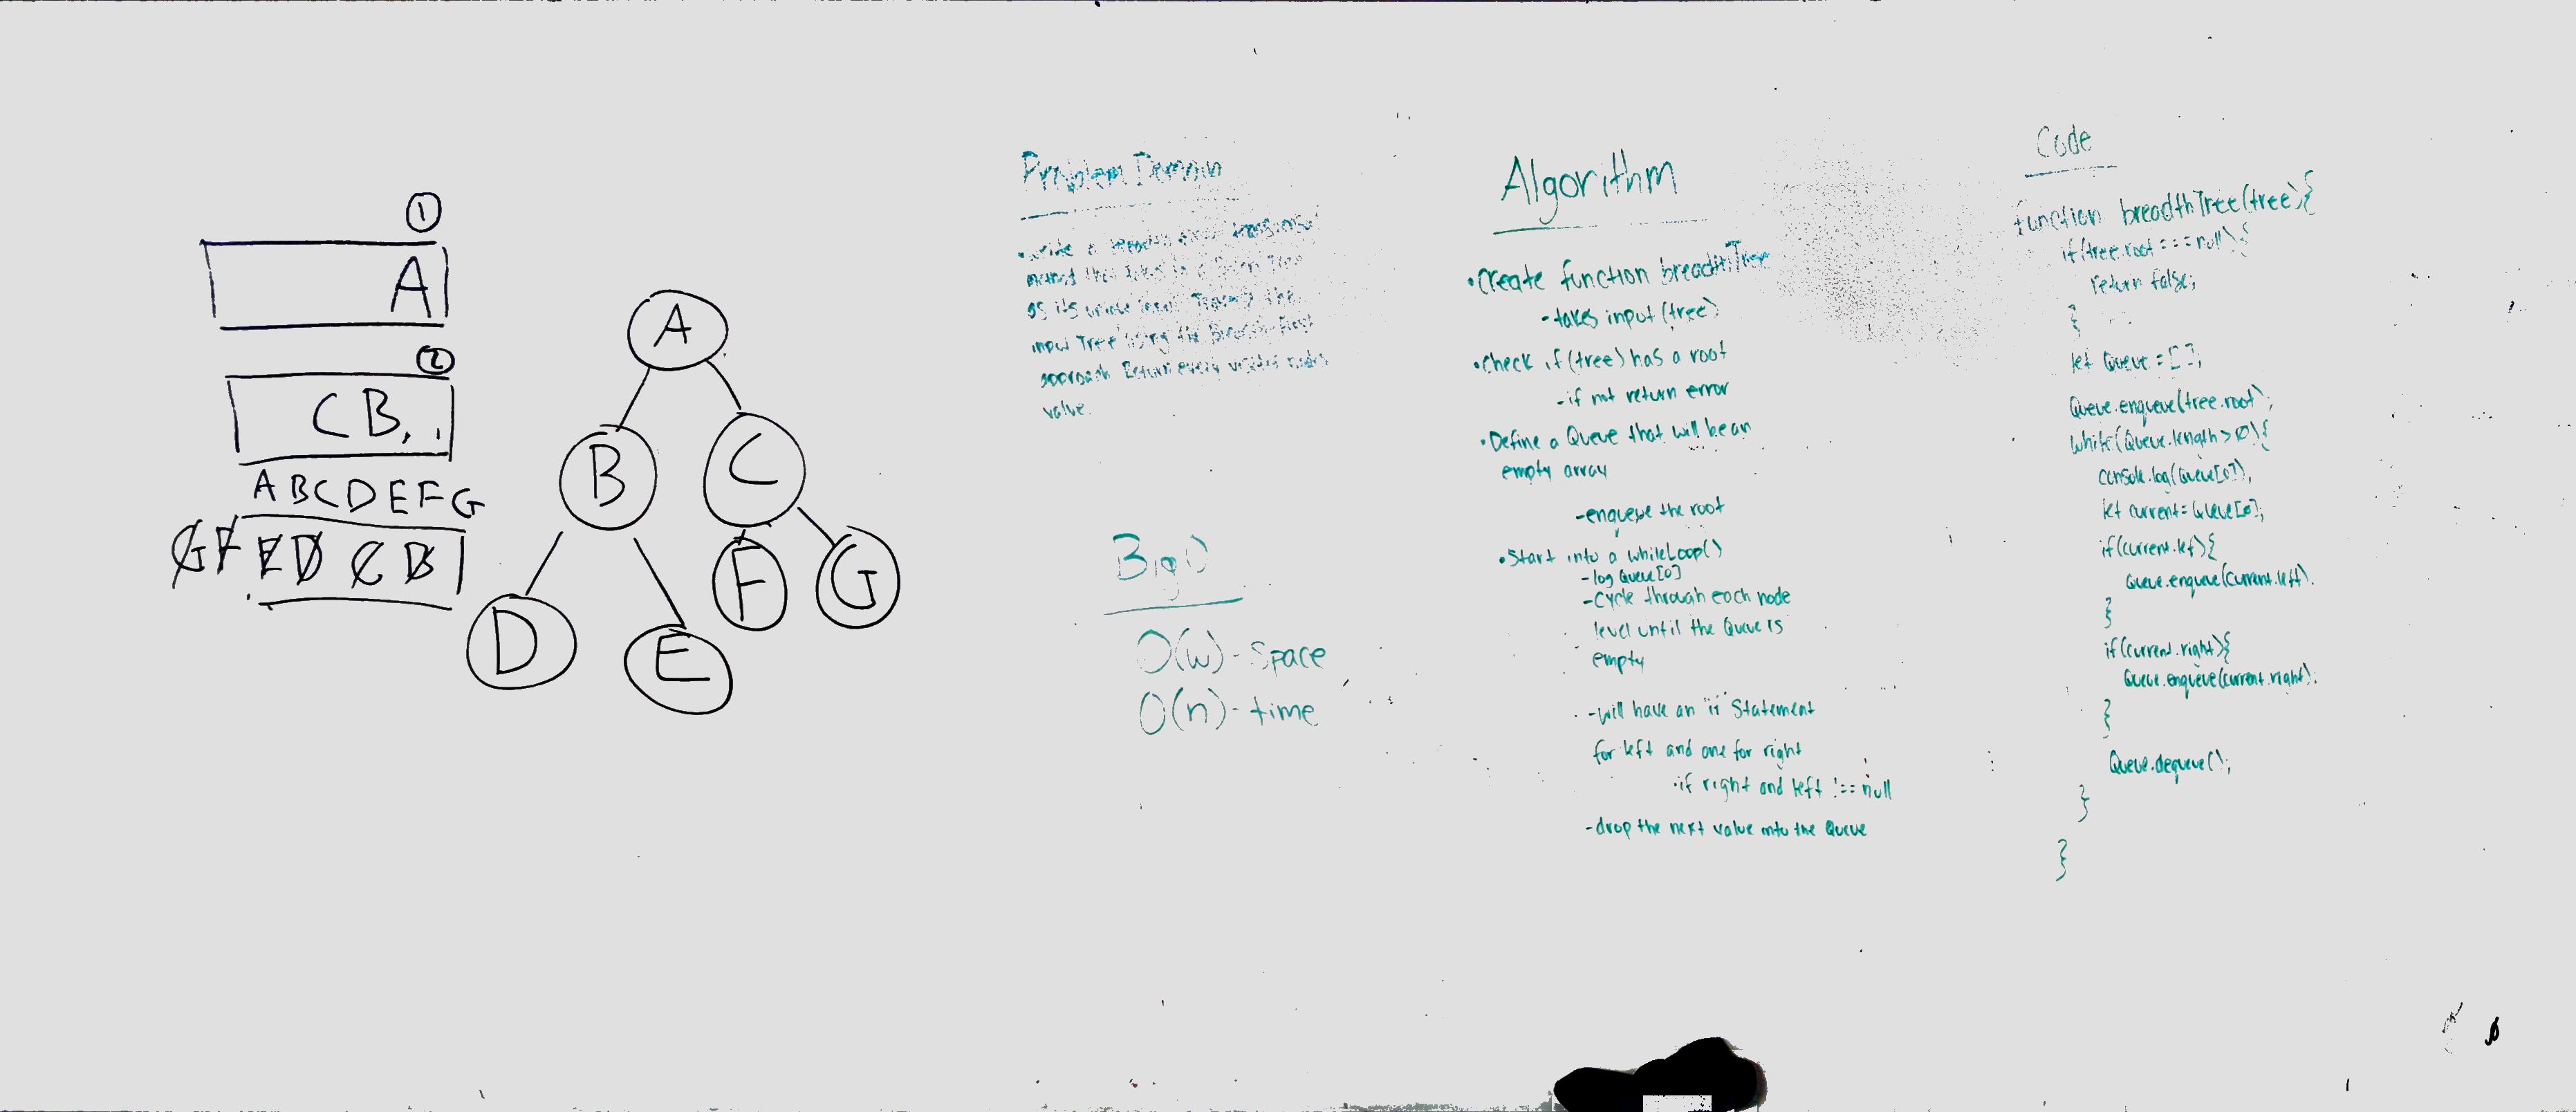 ①
A
②
C B
A B C D E F G
G F E D C B
A
B
C
D
E
F
G
Problem Domain
• Write a breadth first traversal
method that takes in a Binary Tree
as its unique input. Traverse the
input Tree using the Breadth-First
approach Return every visited node's
value.
Big O
O(w) - Space
O(n) - time
Algorithm
• Create function breadthTree
- takes input (tree)
• Check if (tree) has a root
- if not return error
• Define a Queue that will be an
empty array
- enqueue the root
• Start into a whileLoop()
- log Queue[0]
- Cycle through each node
level until the Queue is
empty
- will have an "if" Statement
for left and one for right
• if right and left !== null
- drop the next value into the Queue
Code
function breadthTree(tree){
if(tree.root === null){
return false;
}
let Queue = [];
Queue.enqueue(tree.root);
while(Queue.length > 0){
console.log(Queue[0]);
let current = Queue[0];
if(current.left){
Queue.enqueue(current.left).
}
if(current.right){
Queue.enqueue(current.right);
}
Queue.dequeue();
}
}